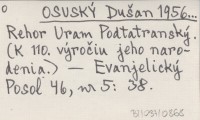 OSUSKÝ Dušan 1956...
Rehor Uram Podtatranský.
(K 110. výročiu jeho naro-
denia.) — Evanjelický
Posol 46, nr 5: 38.